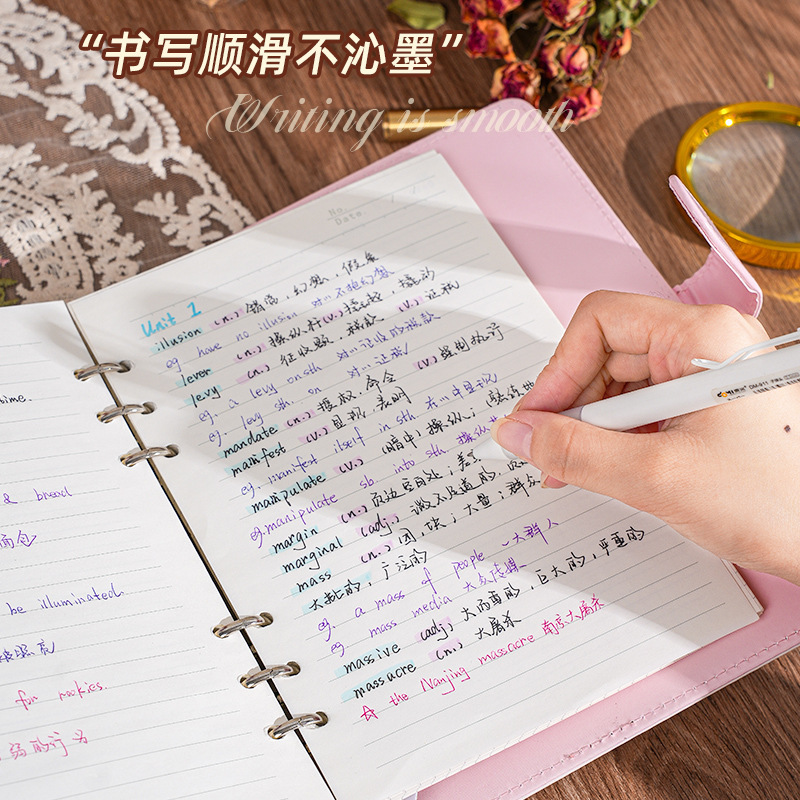 “书写顺滑不沁墨”
Writing is smooth
No.
Date
Unit 1
illusion (n.) 错觉, 幻想, 假象
eg have no illusion 对…不抱幻想
lever (n.) 操纵杆 (v.) 撬动
levy (n.) 征收额, 税款 (v.) 征税
eg. a levy on sth 对…征收的税款
eg. levy sth. on 对…征税
mandate (n.) 授权, 命令 (v.) 强制执行
manifest (v.) 显现, 表明
eg. manifest itself in sth. 在…中显现
manipulate (v.) (暗中) 操纵;
eg. manipulate sb. into sth.
margin (n.) 页边空白处;
marginal (adj.) 微不足道的,
mass (n.) 团, 块; 大量; 群众
大批的, 广泛的
eg. a mass of people 一大群人
eg. mass media 大众传媒
massive (adj.) 大而重的, 巨大的, 严重的
massacre (n.) 大屠杀
☆ the Nanjing massacre 南京大屠杀
& bread
面包
be illuminated.
被照亮
for rookies.